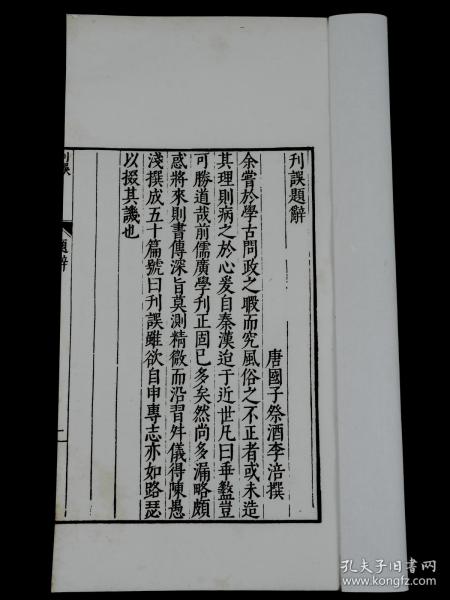 刊誤題辭
唐國子祭酒李涪撰
余嘗於學古問政之暇而究風俗之不正者或未造
其理則病之於心爰自秦漢迨于近世凡曰乖盭豈
可勝道哉前儒廣學刊正固已多矣然尚多漏略頗
惑將來則書傳深旨莫測精微而沿習舛儀得陳愚
淺撰成五十篇號曰刊誤雖欲自申專志亦如路瑟
以掇其譏也
刊誤
題辭
一
孔夫子旧书网
www.kongfz.com